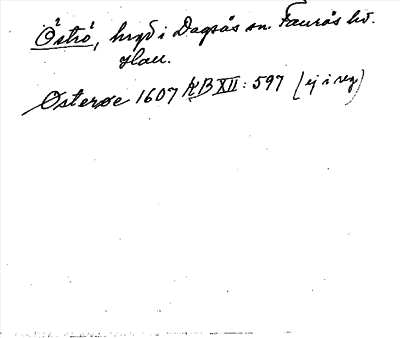 Öströ, hrgd i Dagsås sn. Faurås hd.
Hall.
Österøe 1607 KB XII: 597 (ej i reg)